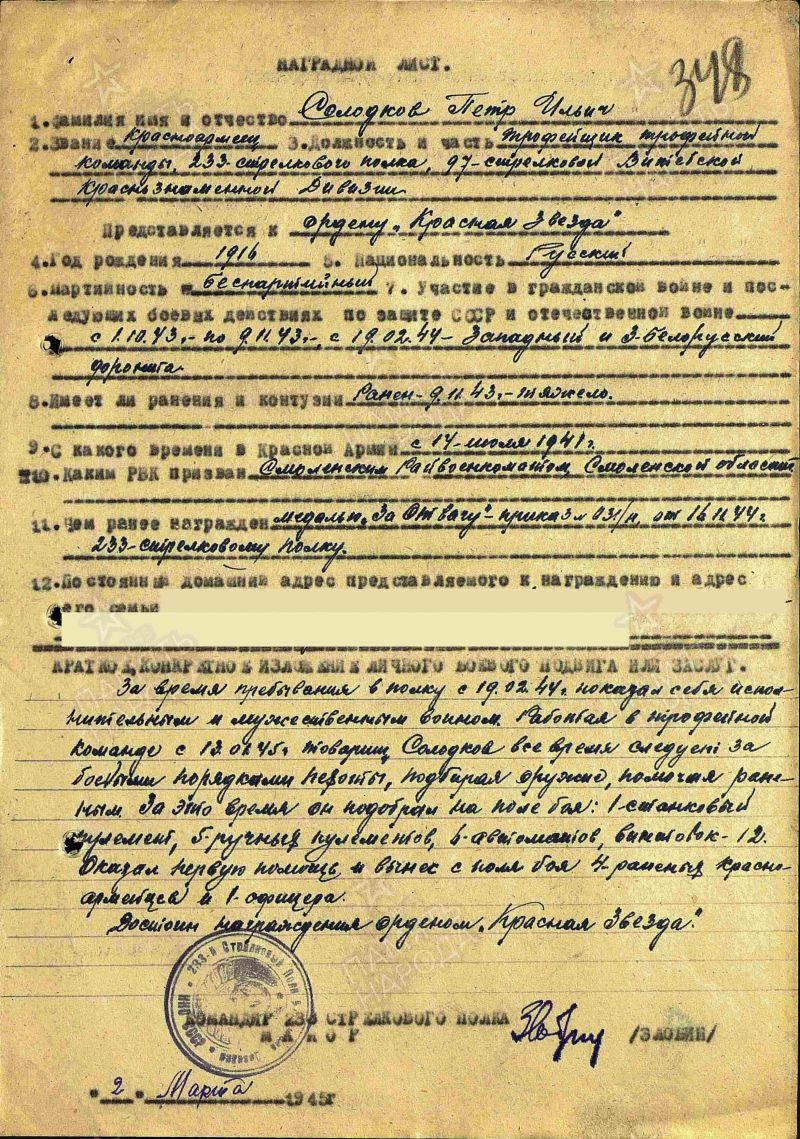 348
НАГРАДНОЙ ЛИСТ.
1. Фамилия имя и отчество Солодков Петр Ильич
2. Звание Красноармеец 3. Должность и часть трофейщик трофейной
команды, 233-стрелкового полка, 97-стрелковой Витебской
Краснознаменной Дивизии
Представляется к ордену „Красная Звезда"
4. Год рождения 1916 5. Национальность Русский
6. Партийность беспартийный 7. Участие в гражданской войне и пос-
ледующих боевых действиях по защите СССР и отечественной войне
с 1.10.43.- по 9.11.43-, с 19.02.44- Западный и 3-Белорусский
фронта.
8. Имеет ли ранения и контузии Ранен- 9.11.43.- тяжело.
9. С какого времени в Красной Армии с 14-июля 1941г.
10. Каким РВК призван Смоленским Райвоенкоматом, Смоленской области
11. Чем ранее награжден медалью „За Отвагу"- приказ № 031/н, от 16.11.44г.
233-стрелковому полку.
12. Постоянный домашний адрес представляемого к награждению и адрес
его семьи
КРАТКОЕ, КОНКРЕТНОЕ ИЗЛОЖЕНИЕ ЛИЧНОГО БОЕВОГО ПОДВИГА ИЛИ ЗАСЛУГ.
За время пребывания в полку с 19.02.44г. показал себя испол-
нительным и мужественным воином. Работая в трофейной
команде с 13.01.45г. товарищ Солодков все время следует за
боевыми порядками пехоты, подбирая оружие, помогая ране-
ным. За это время он подобрал на поле боя: 1-станковый
пулемент, 5-ручных пулементов, 6-автоматов, винтовок- 12.
Оказал первую помощь и вынес с поля боя 4-раненых красно-
армейцев и 1-офицера.
Достоин награждения орденом „Красная Звезда".
233-й Стрелковый Полк
НКО СССР
КОМАНДИР 233 СТРЕЛКОВОГО ПОЛКА
МАЙОР /ЗЛОБИН/
"2" Марта 1945г